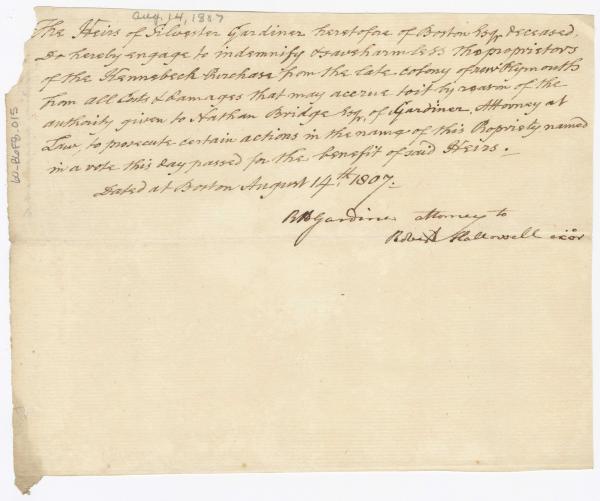 Aug. 14, 1807
The Heirs of Silvester Gardiner heretofore of Boston Esqr. deceased,
Do hereby engage to indemnify & save harmless the proprietors
of the Kennebeck Purchase from the late colony of new Plymouth
from all Costs & Damages that may accrue to it by reason of the
authority given to Nathan Bridge Esqr. of Gardiner, Attorney at
Law, to prosecute certain actions in the name of this Propriety named
in a vote this day passed for the benefit of said Heirs.
Dated at Boston August 14th. 1807.
RH Gardiner attorney to
Robert Hallowell exor